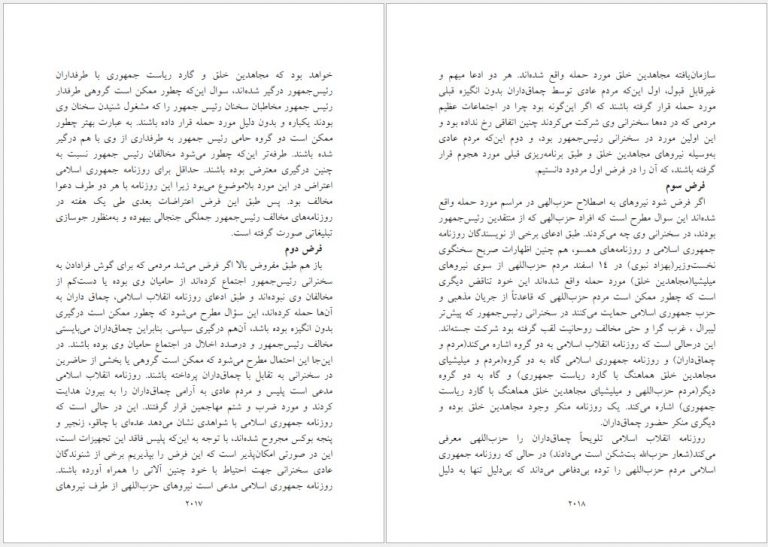 خواهد بود که مجاهدین خلق و گارد ریاست جمهوری با طرفداران
رئیس‌جمهور درگیر شده‌اند، سوال این‌که چطور ممکن است گروهی طرفدار
رئیس جمهور مخاطبان سخنان رئیس جمهور را که مشغول شنیدن سخنان وی
بودند یکباره و بدون دلیل مورد حمله قرار داده باشند. به عبارت بهتر چطور
ممکن است دو گروه حامی رئیس جمهور به طرفداری از وی با هم درگیر
شده باشند. طرفه‌تر این‌که چطور می‌شود مخالفان رئیس جمهور نسبت به
چنین درگیری معترض بوده باشند. حداقل برای روزنامه جمهوری اسلامی
اعتراض در این مورد بلاموضوع می‌بود زیرا این روزنامه با هر دو طرف دعوا
مخالف بود. پس طبق این فرض اعتراضات بعدی طی یک هفته در
روزنامه‌های مخالف رئیس‌جمهور جملگی جنجالی بیهوده و به‌منظور جوسازی
تبلیغاتی صورت گرفته است.
فرض دوم
باز هم طبق مفروض بالا اگر فرض می‌شد مردمی که برای گوش فرادادن به
سخنرانی رئیس‌جمهور اجتماع کرده‌اند از حامیان وی بوده یا دست‌کم از
مخالفان وی نبوده‌اند و طبق ادعای روزنامه انقلاب اسلامی، چماق داران به
آن‌ها حمله کرده‌اند، این سؤال مطرح می‌شود که چطور ممکن است درگیری
بدون انگیزه بوده باشد، آن‌هم درگیری سیاسی. بنابراین چماق‌داران می‌بایستی
مخالف رئیس‌جمهور و درصدد اخلال در اجتماع حامیان وی بوده باشند. در
این‌جا این احتمال مطرح می‌شود که ممکن است گروهی یا بخشی از حاضرین
در سخنرانی به تقابل با چماق‌داران پرداخته باشند. روزنامه انقلاب اسلامی
مدعی است پلیس و مردم عادی به آرامی چماق‌داران را به بیرون هدایت
کردند و مورد ضرب و شتم مهاجمین قرار گرفتند. این در حالی است که
روزنامه جمهوری اسلامی با شواهدی نشان می‌دهد عده‌ای با چاقو، زنجیر و
پنجه بوکس مجروح شده‌اند، با توجه به این‌که پلیس فاقد این تجهیزات است،
این در صورتی امکان‌پذیر است که این فرض را بپذیریم برخی از شنوندگان
عادی سخنرانی جهت احتیاط با خود چنین آلاتی را همراه آورده باشند.
روزنامه جمهوری اسلامی مدعی است نیروهای حزب‌اللهی از طرف نیروهای
۲۰۱۷
سازمان‌یافته مجاهدین خلق مورد حمله واقع شده‌اند. هر دو ادعا مبهم و
غیرقابل قبول، اول این‌که مردم عادی توسط چماق‌داران بدون انگیزه قبلی
مورد حمله قرار گرفته باشند که اگر این‌گونه بود چرا در اجتماعات عظیم
مردمی که در ده‌ها سخنرانی وی شرکت می‌کردند چنین اتفاقی رخ نداده بود و
این اولین مورد در سخنرانی رئیس‌جمهور بود، و دوم این‌که مردم عادی
به‌وسیله نیروهای مجاهدین خلق و طبق برنامه‌ریزی قبلی مورد هجوم قرار
گرفته باشند، که آن را در فرض اول مردود دانستیم.
فرض سوم
اگر فرض شود نیروهای به اصطلاح حزب‌الهی در مراسم مورد حمله واقع
شده‌اند این سوال مطرح است که افراد حزب‌الهی که از منتقدین رئیس‌جمهور
بودند، در سخنرانی وی چه می‌کردند. طبق ادعای برخی از نویسندگان روزنامه
جمهوری اسلامی و روزنامه‌های همسو، هم چنین اظهارات صریح سخنگوی
نخست‌وزیر(بهزاد نبوی) در ۱۴ اسفند مردم حزب‌اللهی از سوی نیروهای
میلیشیا(مجاهدین خلق) مورد حمله واقع شده‌اند. این خود تناقض دیگری
است که چطور ممکن است مردم حزب‌اللهی که قاعدتاً از جریان مذهبی و
حزب جمهوری اسلامی حمایت می‌کنند در سخنرانی رئیس جمهور که پیش‌تر
لیبرال ، غرب گرا و حتی مخالف روحانیت لقب گرفته بود شرکت جسته‌اند.
این درحالی است که روزنامه انقلاب اسلامی به دو گروه اشاره می‌کند(مردم و
چماق‌داران) و روزنامه جمهوری اسلامی گاه به دو گروه(مردم و میلیشیای
مجاهدین خلق هماهنگ با گارد ریاست جمهوری) و گاه به دو گروه
دیگر(مردم حزب‌اللهی و میلیشیای مجاهدین خلق هماهنگ با گارد ریاست
جمهوری) اشاره می‌کند. یک روزنامه منکر وجود مجاهدین خلق بوده و
دیگری منکر حضور چماق‌داران.
روزنامه انقلاب اسلامی تلویحاً چماق‌داران را حزب‌اللهی معرفی
می‌کند(شعار حزب‌الله بت‌شکن است می‌دادند) در حالی که روزنامه جمهوری
اسلامی مردم حزب‌اللهی را توده بی‌دفاعی می‌داند که بی‌دلیل تنها به دلیل
۲۰۱۸